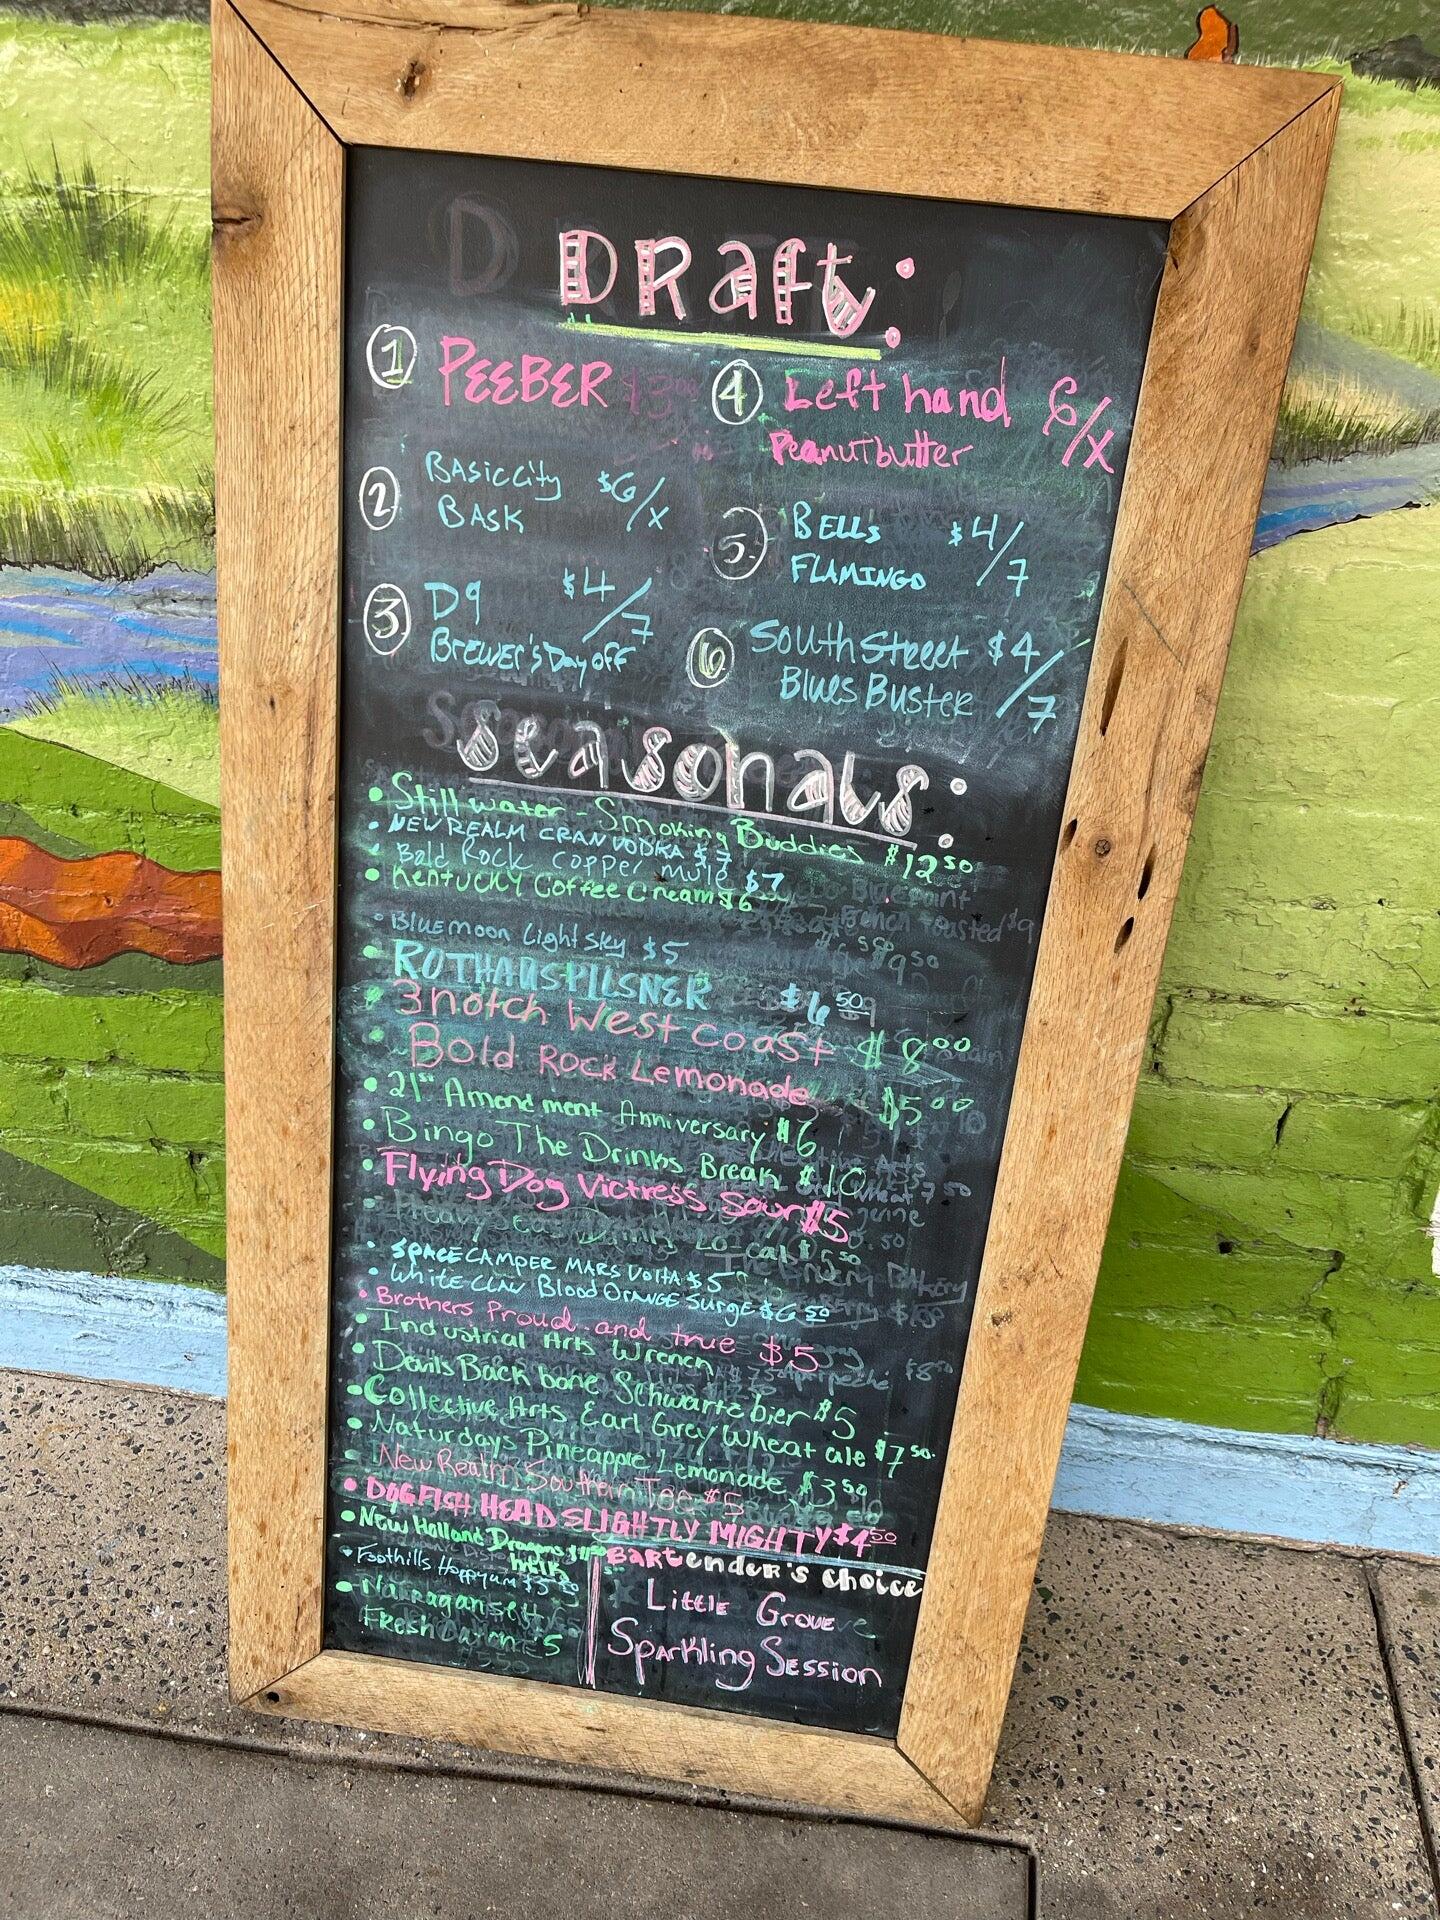 Draft:
1 PEEBER $3.00
2 Basic City $6/x
BASK
3 D9 $4/7
Brewer's Day off
4 Left hand 6/x
Peanutbutter
5 BELLS $4/7
FLAMINGO
6 South Street $4/7
Blues Buster
seasonals:
• Stillwater - Smoking Buddies $12.50
• NEW REALM CRAN VODKA $7
• Bold Rock copper mule $7
• Kentucky Coffee Cream $6
• Bluemoon Light sky $5
• ROTHAUS PILSNER $6.50
• 3 notch West coast $8.00
• Bold Rock Lemonade $5.00
• 21st Amendment Anniversary $6
• Bingo The Drinks Break $10
• Flying Dog Victress Sour $5
• SPACE CAMPER MARS VOLTA $5
• White CLAW Blood ORANGE Surge $6.50
• Brothers Proud and true $5
• Industrial Arts Wrench
• Devils Back bone Schwartzbier $5
• Collective Arts Earl Grey Wheat ale $7.50
• Naturdays Pineapple Lemonade $3.50
• New Realm Southern Tea $5
• DOGFISH HEAD SLIGHTLY MIGHTY $4.50
• New Holland Dragons
milk
• Foothills Hoppyum
• Narragansett
Fresh 5
Bartender's choice
Little Grove
Sparkling Session